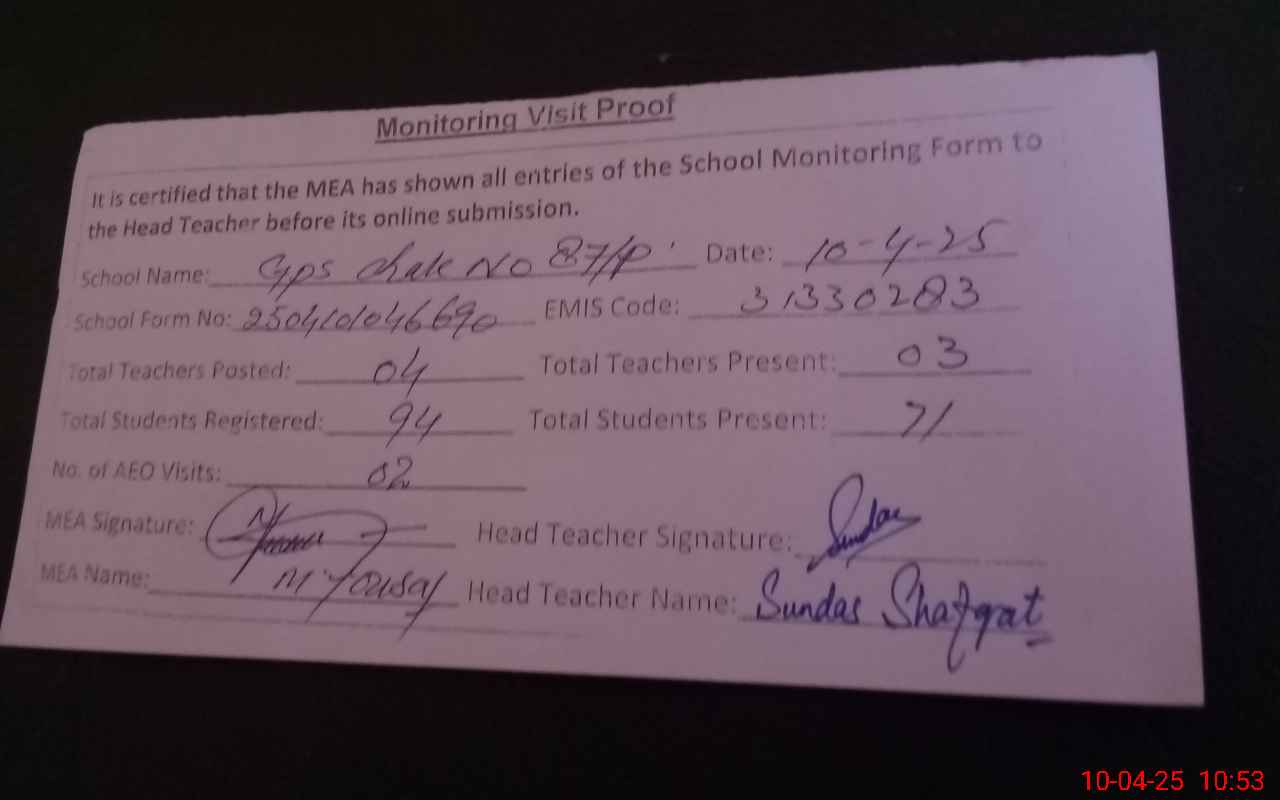 Monitoring Visit Proof
It is certified that the MEA has shown all entries of the School Monitoring Form to
the Head Teacher before its online submission.
School Name: Gps Chak No 87/P Date: 10-4-25
School Form No: 2504101046690 EMIS Code: 31330283
Total Teachers Posted: 04 Total Teachers Present: 03
Total Students Registered: 94 Total Students Present: 71
No. of AEO Visits: 02
MEA Signature: Head Teacher Signature: Sundas
MEA Name: M Yousaf Head Teacher Name: Sundas Shafqat
10-04-25 10:53